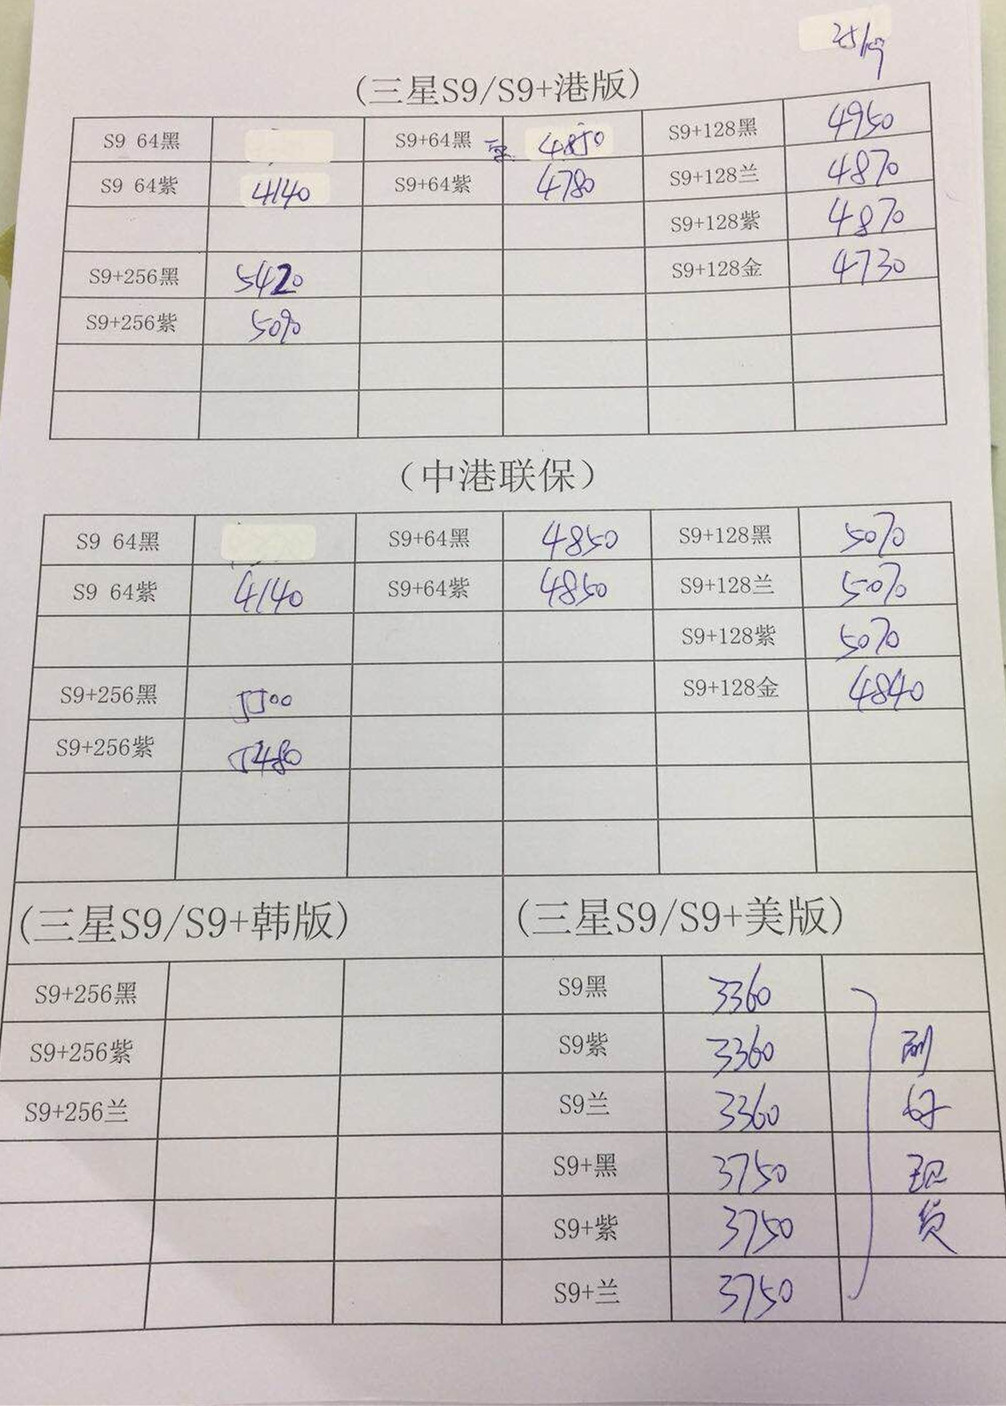 (三星S9/S9+港版)
S9 64黑 S9+64黑 4850 S9+128黑 4950
S9 64紫 4140 S9+64紫 4780 S9+128兰 4870
S9+128紫 4870
S9+256黑 5420 S9+128金 4730
S9+256紫 5090
(中港联保)
S9 64黑 S9+64黑 4850 S9+128黑 5070
S9 64紫 4140 S9+64紫 4850 S9+128兰 5070
S9+128紫 5070
S9+256黑 5500 S9+128金 4840
S9+256紫 5480
(三星S9/S9+韩版) (三星S9/S9+美版)
S9+256黑 S9黑 3360
S9+256紫 S9紫 3360 刷
S9+256兰 S9兰 3360 好
S9+黑 3750 现
S9+紫 3750 货
S9+兰 3750